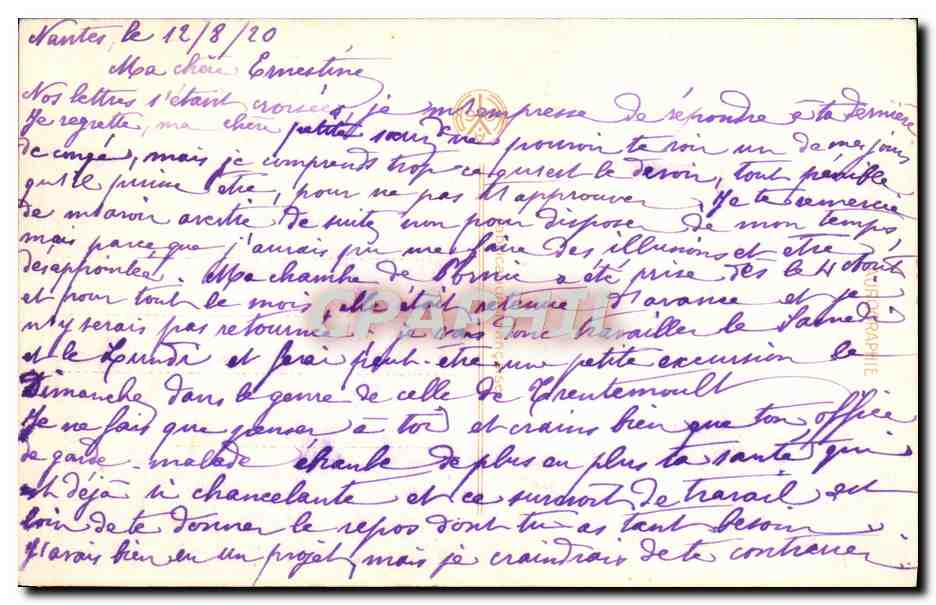 Nantes, le 12/8/20
Ma chère Ernestine,
Nos lettres s'étant croisées, je m'empresse de répondre à ta dernière
Je regrette, ma chère petite sœur, de ne pouvoir te voir un de mes jours
de congé, mais je comprends trop ce qu'est le devoir, tout pénible
qu'il puisse être, pour ne pas t'approuver. Je te remercie
de m'avoir avertie de suite, non pour disposer de mon temps,
mais parce que j'aurais pu me faire des illusions et être
désappointée. Ma chambre de Pornic a été prise dès le 4 Août
et pour tout le mois. Elle était retenue d'avance et je
n'y serais pas retournée. Je vais donc travailler le Samedi
et le Lundi et ferai peut-être une petite excursion le
Dimanche dans le genre de celle de Trentemoult
Je ne fais que penser à toi et crains bien que ton office
de garde-malade ébranle de plus en plus ta santé qui
est déjà si chancelante et ce surcroît de travail est
loin de te donner le repos dont tu as tant besoin
J'avais bien eu un projet, mais je craindrais de te contrarier.
CPAPHIL